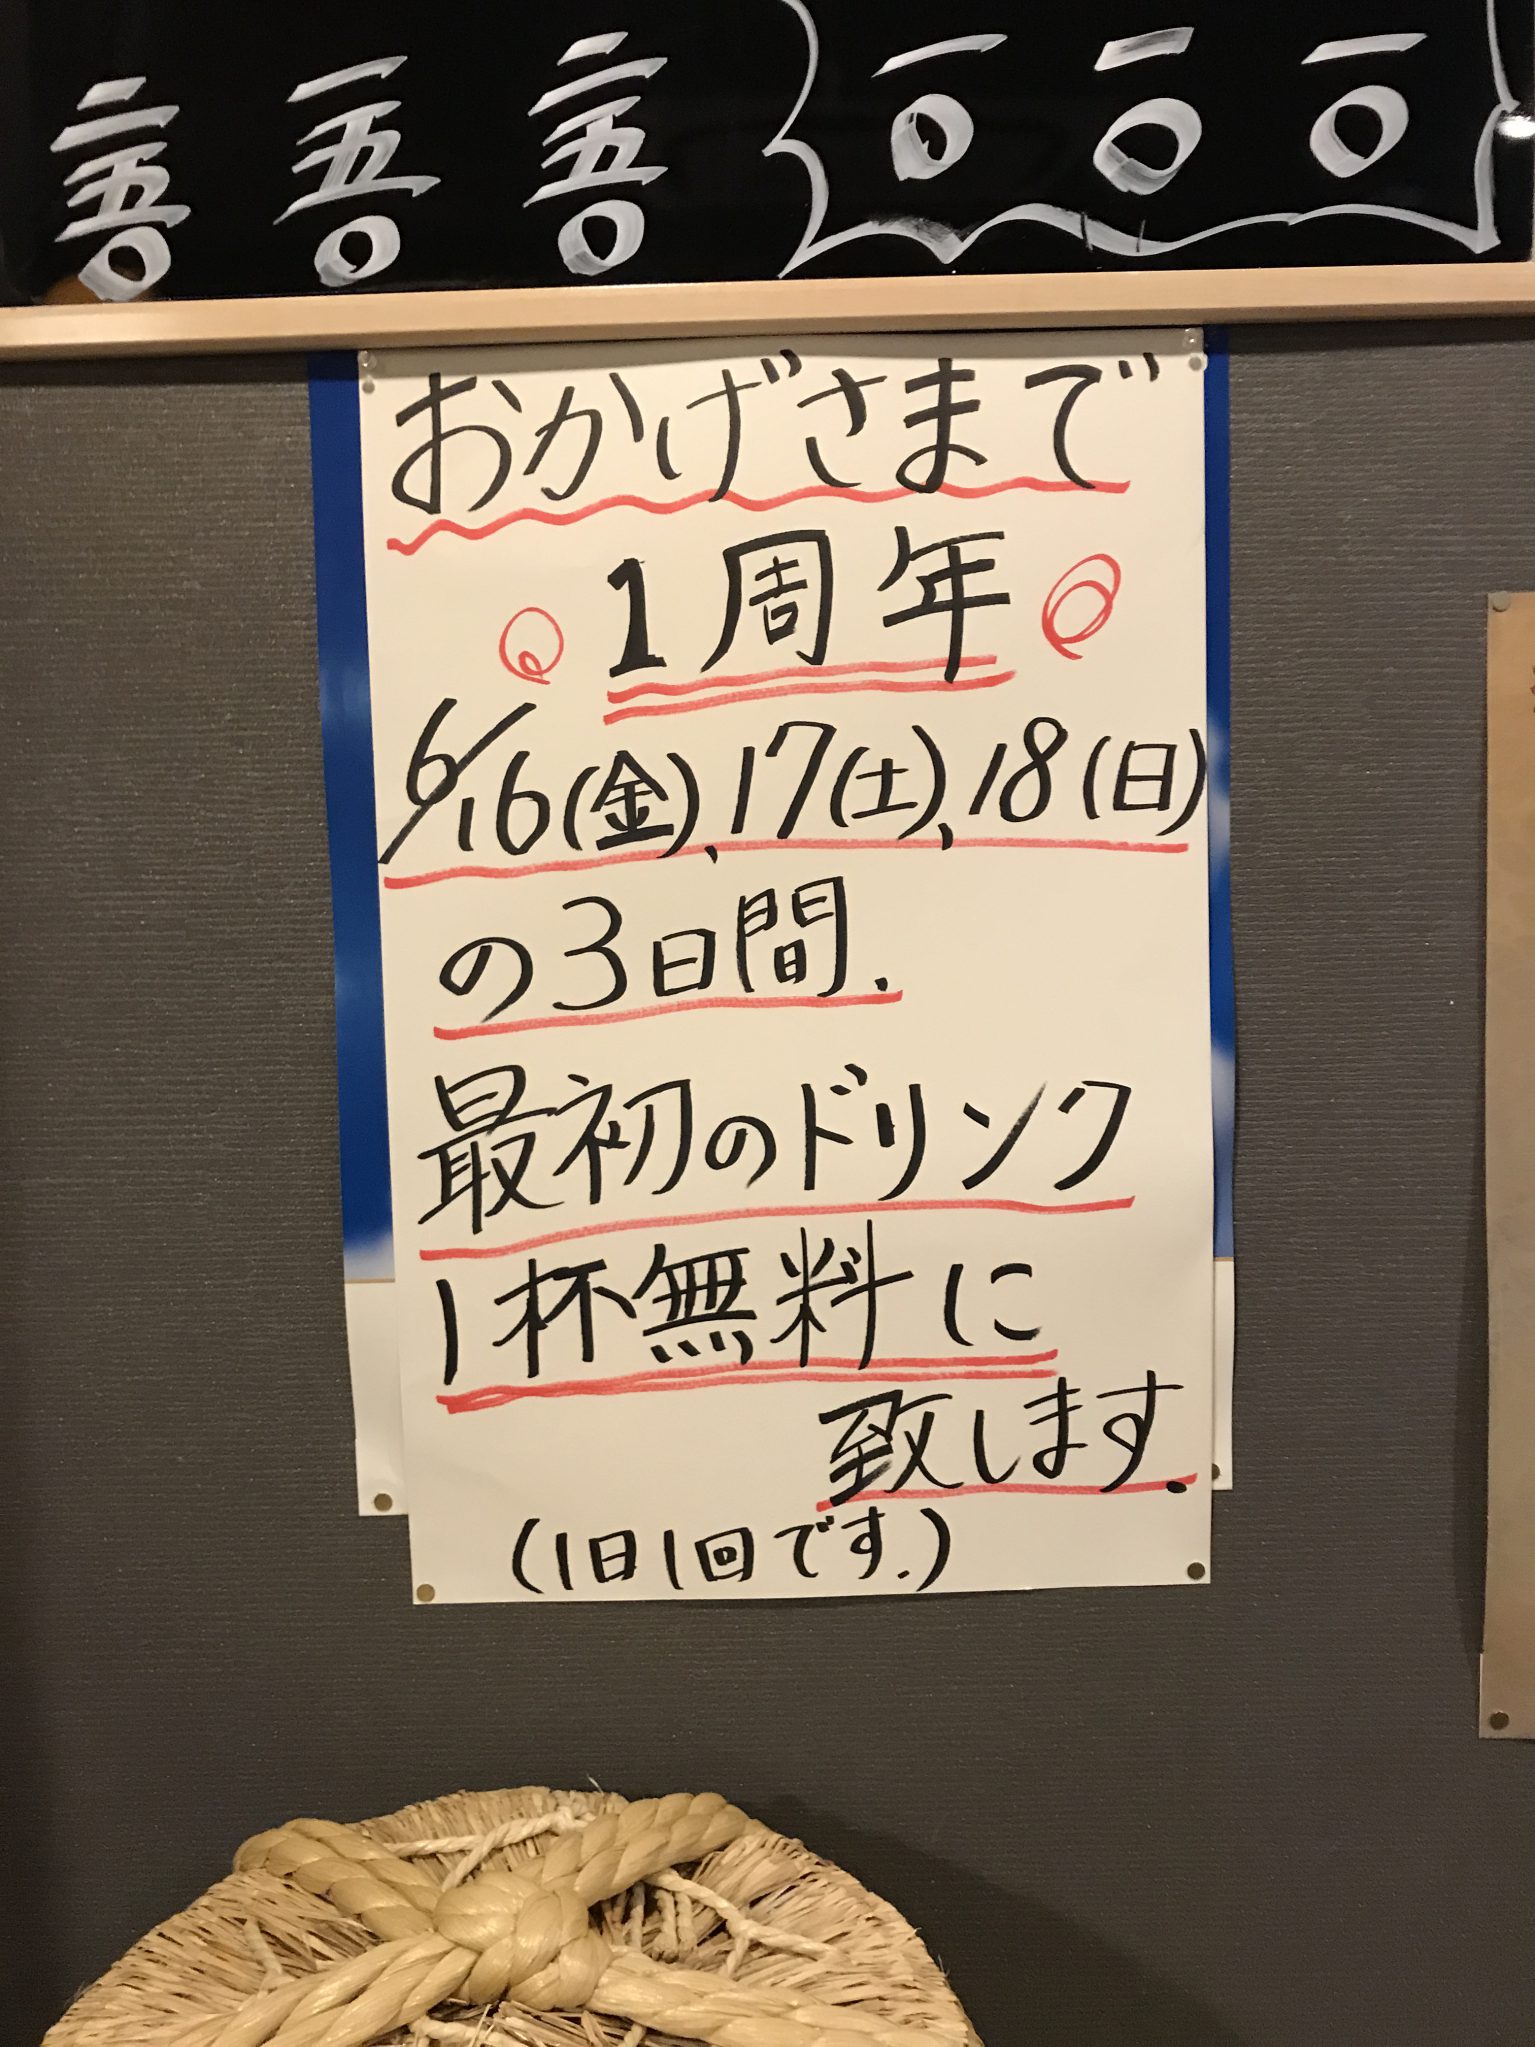 おかげさまで
1周年
6/16(金),17(土),18(日)
の3日間.
最初のドリンク
1杯無料に
致します.
(1日1回です.)